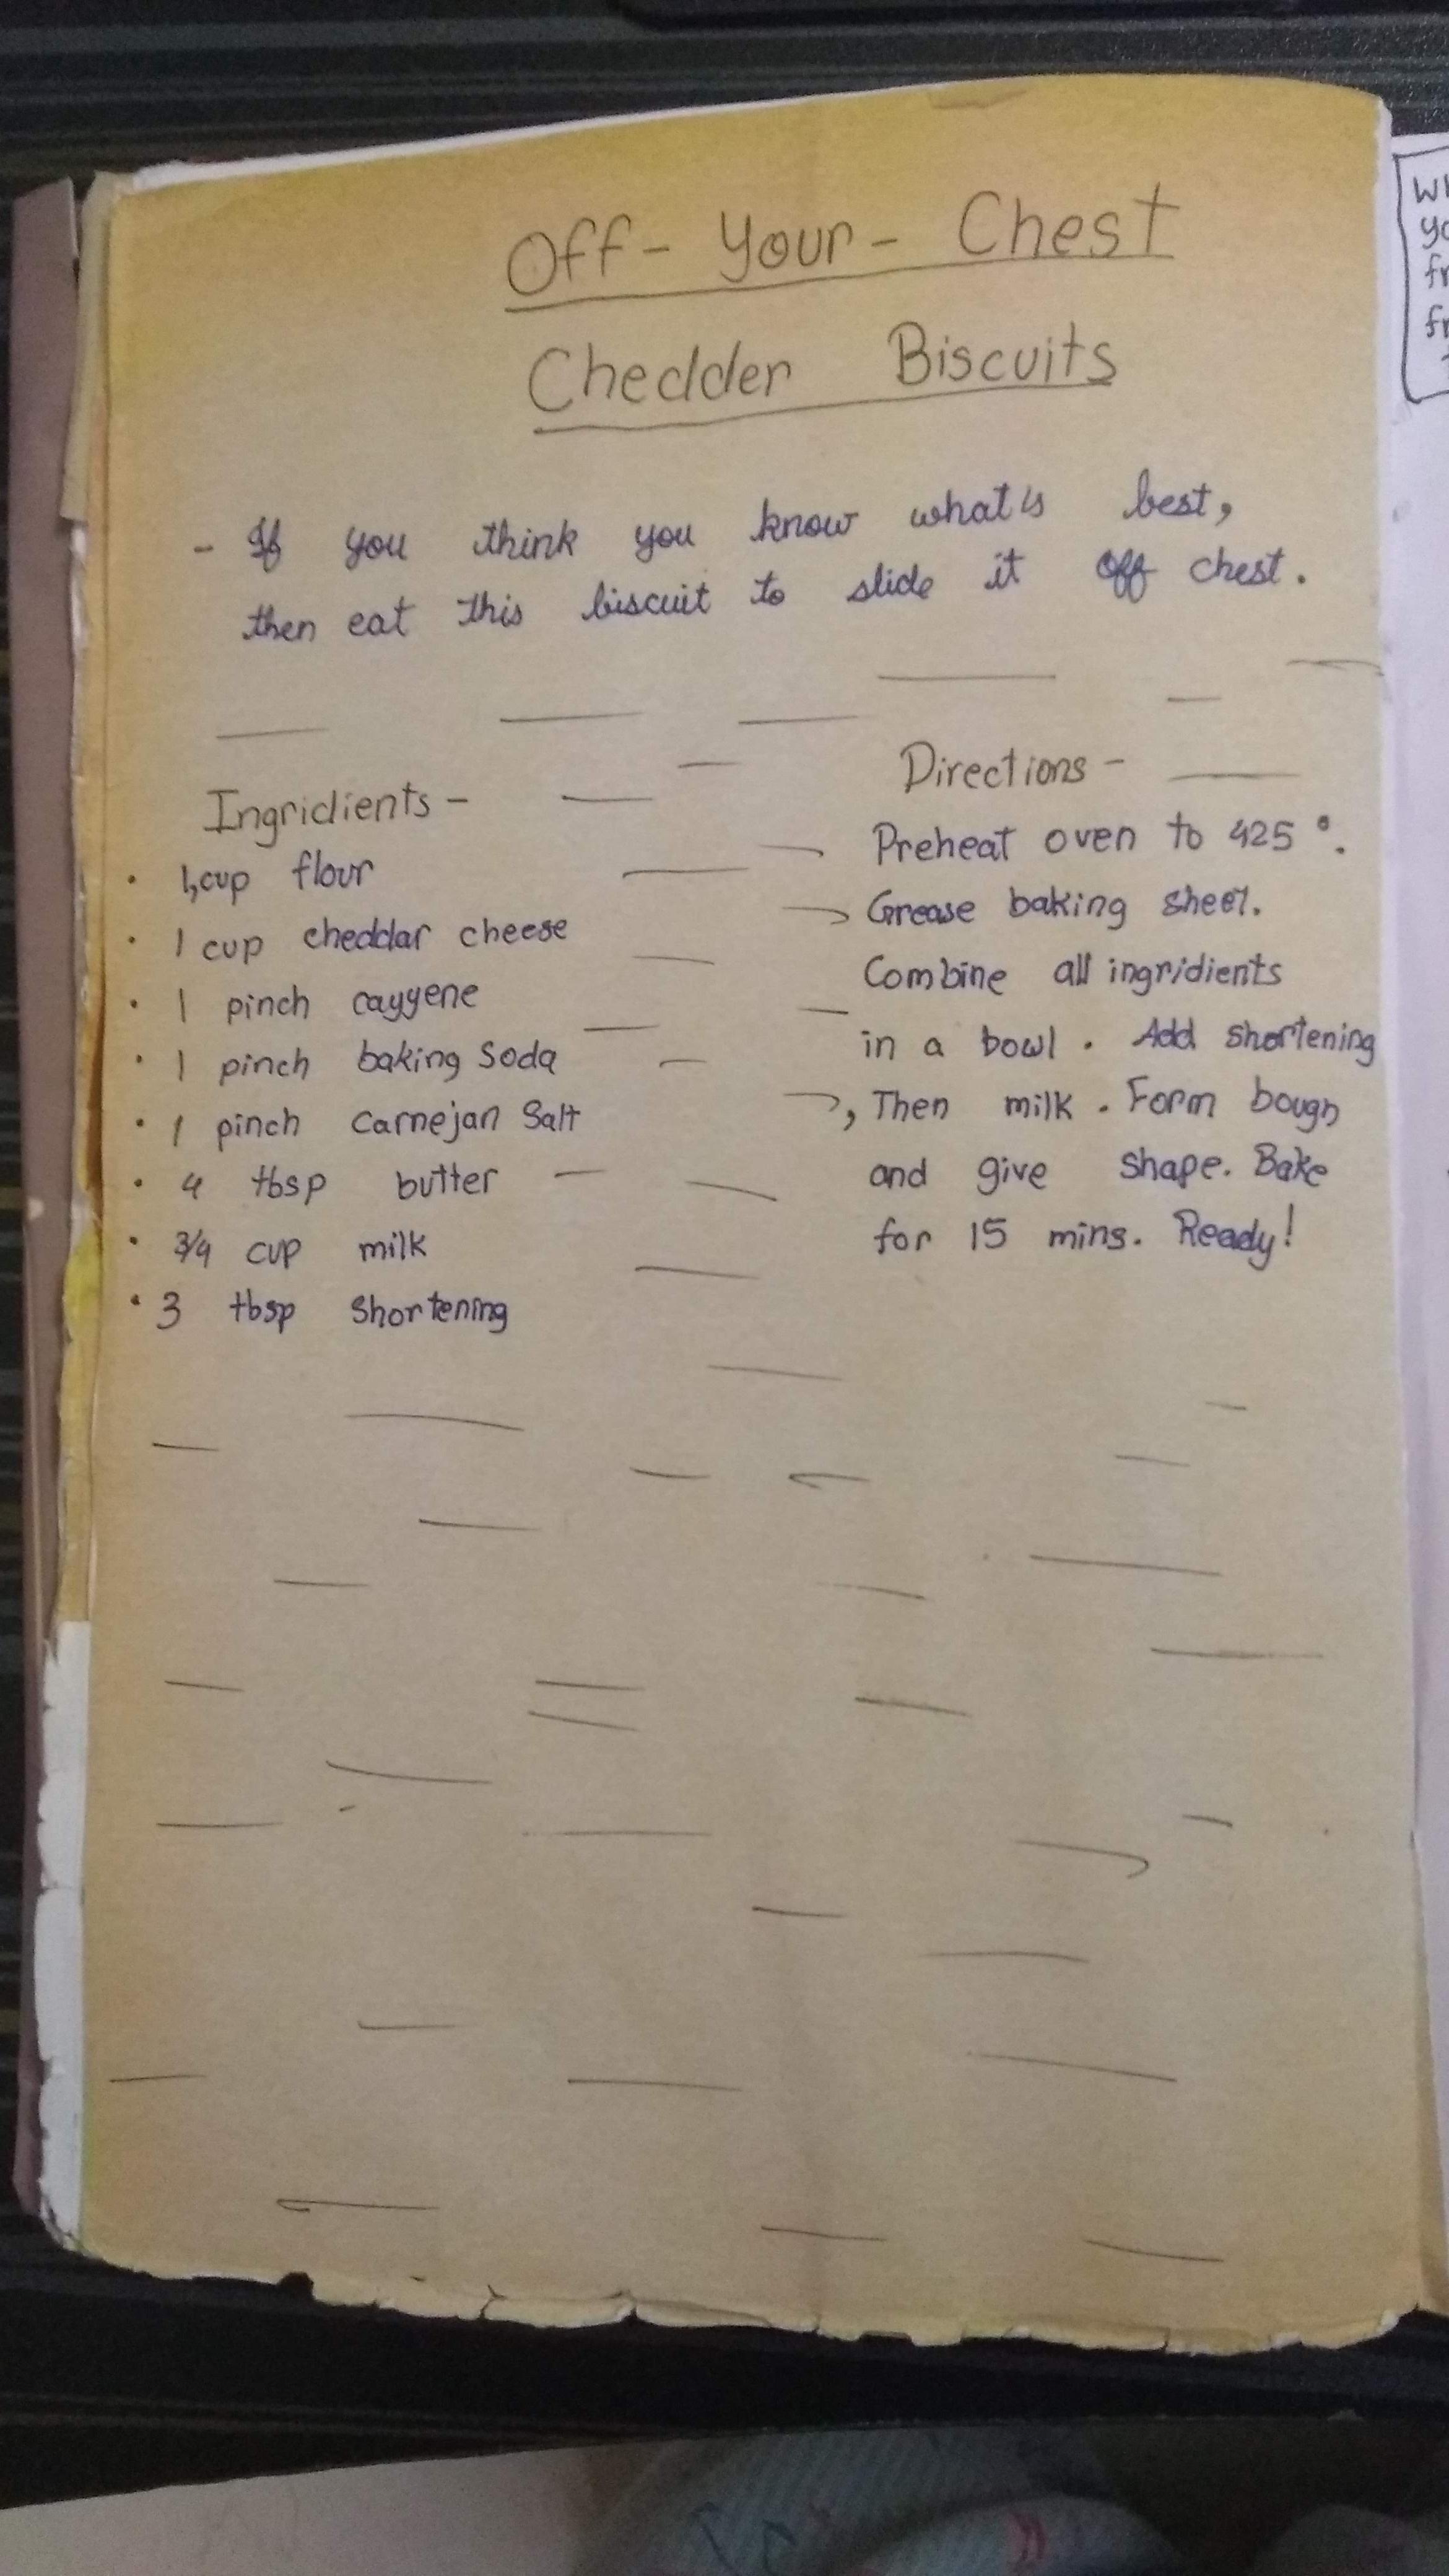 Off - Your - Chest
Chedder Biscuits
- If you think you know what's best,
then eat this biscuit to slide it off chest.
Ingridients -
• 1 cup flour
• 1 cup cheddar cheese
• 1 pinch cayyene
• 1 pinch baking Soda
• 1 pinch Carnejan Salt
• 4 tbsp butter
• 3/4 cup milk
• 3 tbsp Shortening
Directions -
Preheat oven to 425°.
Grease baking sheet.
Combine all ingridients
in a bowl. Add shortening
, Then milk. Form bough
and give shape. Bake
for 15 mins. Ready!